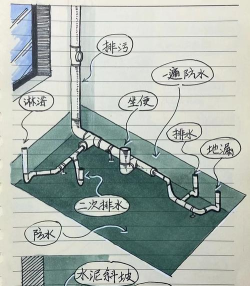 排污
一遍防水
淋浴
坐便
排水
地漏
二次排水
防水
水泥斜坡